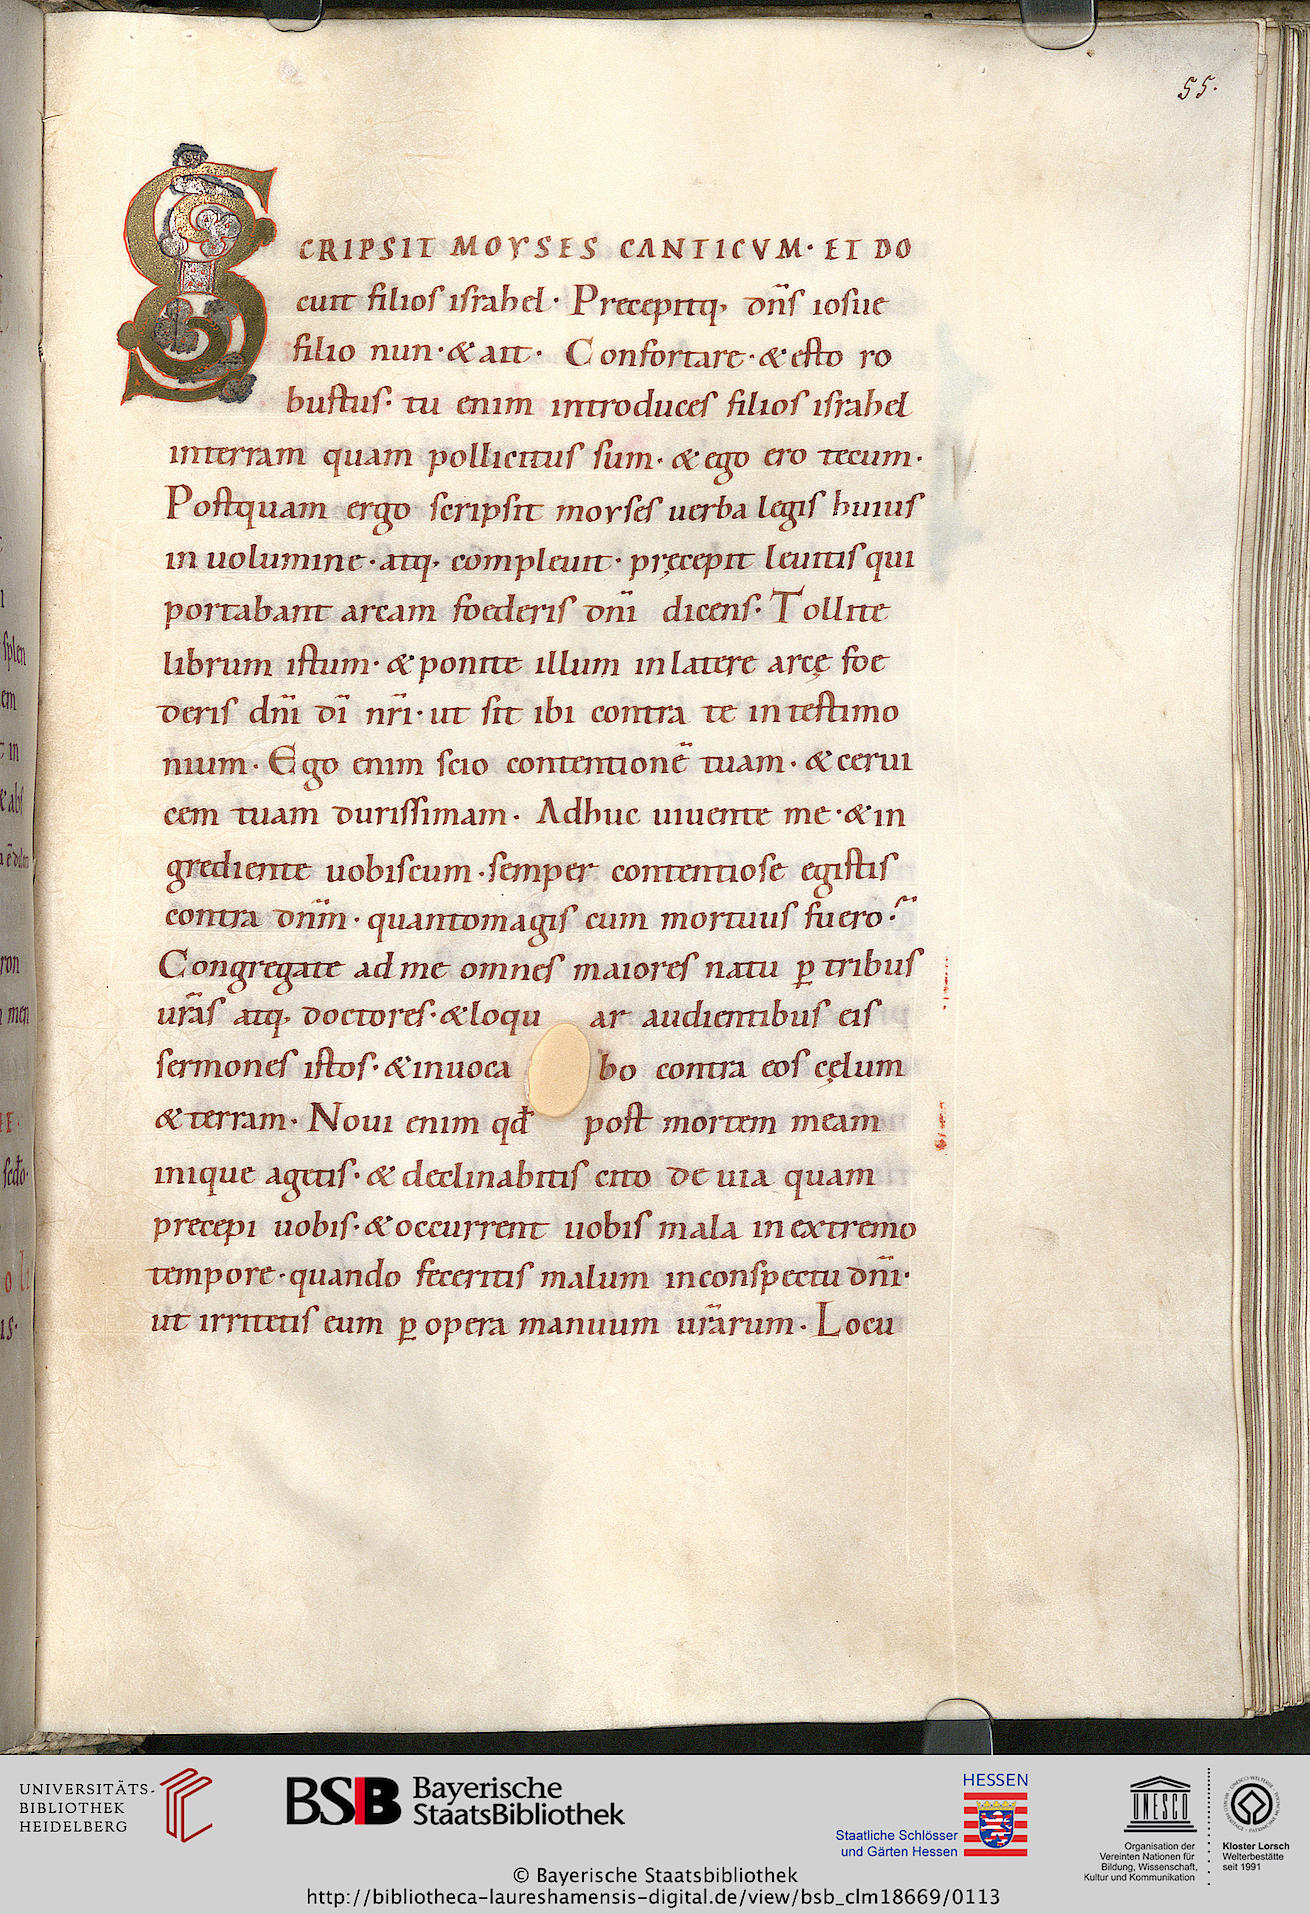 55.
SCRIPSIT MOYSES CANTICVM· ET DO
cuit filios israhel· Precepitq; dn̄s iosue
filio nun· & ait· Confortare· & esto ro
bustus· tu enim introduces filios israhel
interram quam pollicitus sum· & ego ero tecum·
Postquam ergo scripsit moyses uerba legis huius
in uolumine· atq; compleuit· pręcepit leuitis qui
portabant arcam foederis dn̄i dicens· Tollite
librum istum· & ponite illum inlatere arcę foe
deris dn̄i dī nr̄i· ut sit ibi contra te intestimo
nium· Ego enim scio contentionē tuam· & cerui
cem tuam durissimam· Adhuc uiuente me· & in
grediente uobiscum· semper contentiose egistis
contra dn̄m· quantomagis cum mortuus fuero·
Congregate adme omnes maiores natu ꝑ tribus
ur̄as atq; doctores· & loqu ar audientibus eis
sermones istos· & inuoca bo contra eos cęlum
& terram· Noui enim qđ post mortem meam
inique agetis· & declinabitis cito de uia quam
precepi uobis· & occurrent uobis mala in extremo
tempore· quando feceritis malum inconspectu dn̄i·
ut irritetis eum ꝑ opera manuum ur̄arum· Locu
UNIVERSITÄTS-
BIBLIOTHEK
HEIDELBERG
BSB Bayerische
StaatsBibliothek
HESSEN
Staatliche Schlösser
und Gärten Hessen
UNESCO
Organisation der
Vereinten Nationen für
Bildung, Wissenschaft,
Kultur und Kommunikation
Kloster Lorsch
Welterbestätte
seit 1991
© Bayerische Staatsbibliothek
http://bibliotheca-laureshamensis-digital.de/view/bsb_clm18669/0113